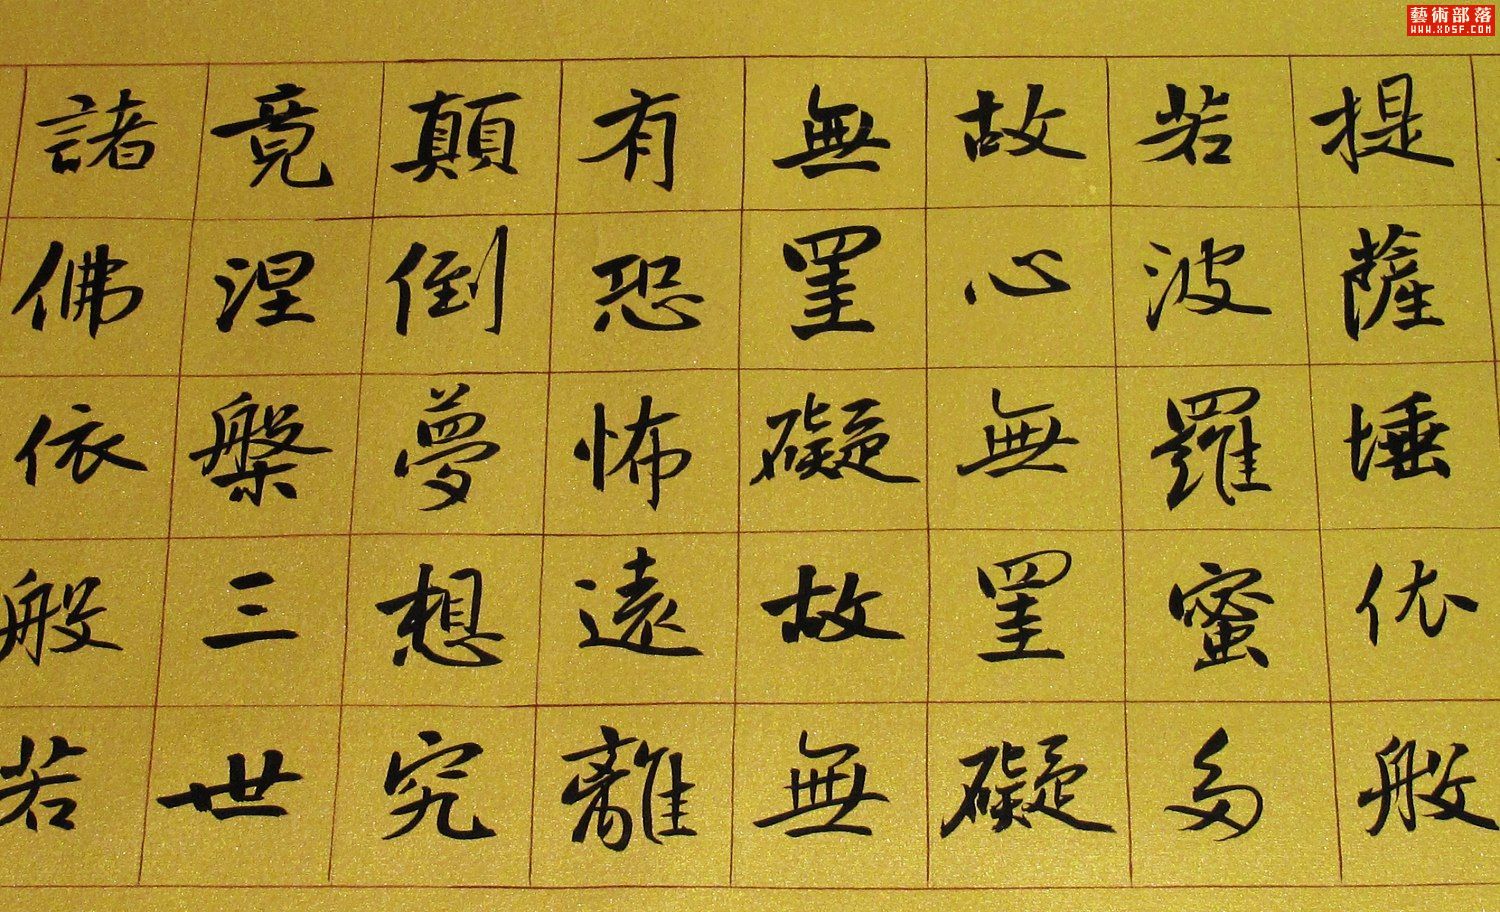 提薩埵依般
若波羅蜜多
故心無罣礙
無罣礙故無
有恐怖遠離
顛倒夢想究
竟涅槃三世
諸佛依般若
藝術部落
www.XDSF.com